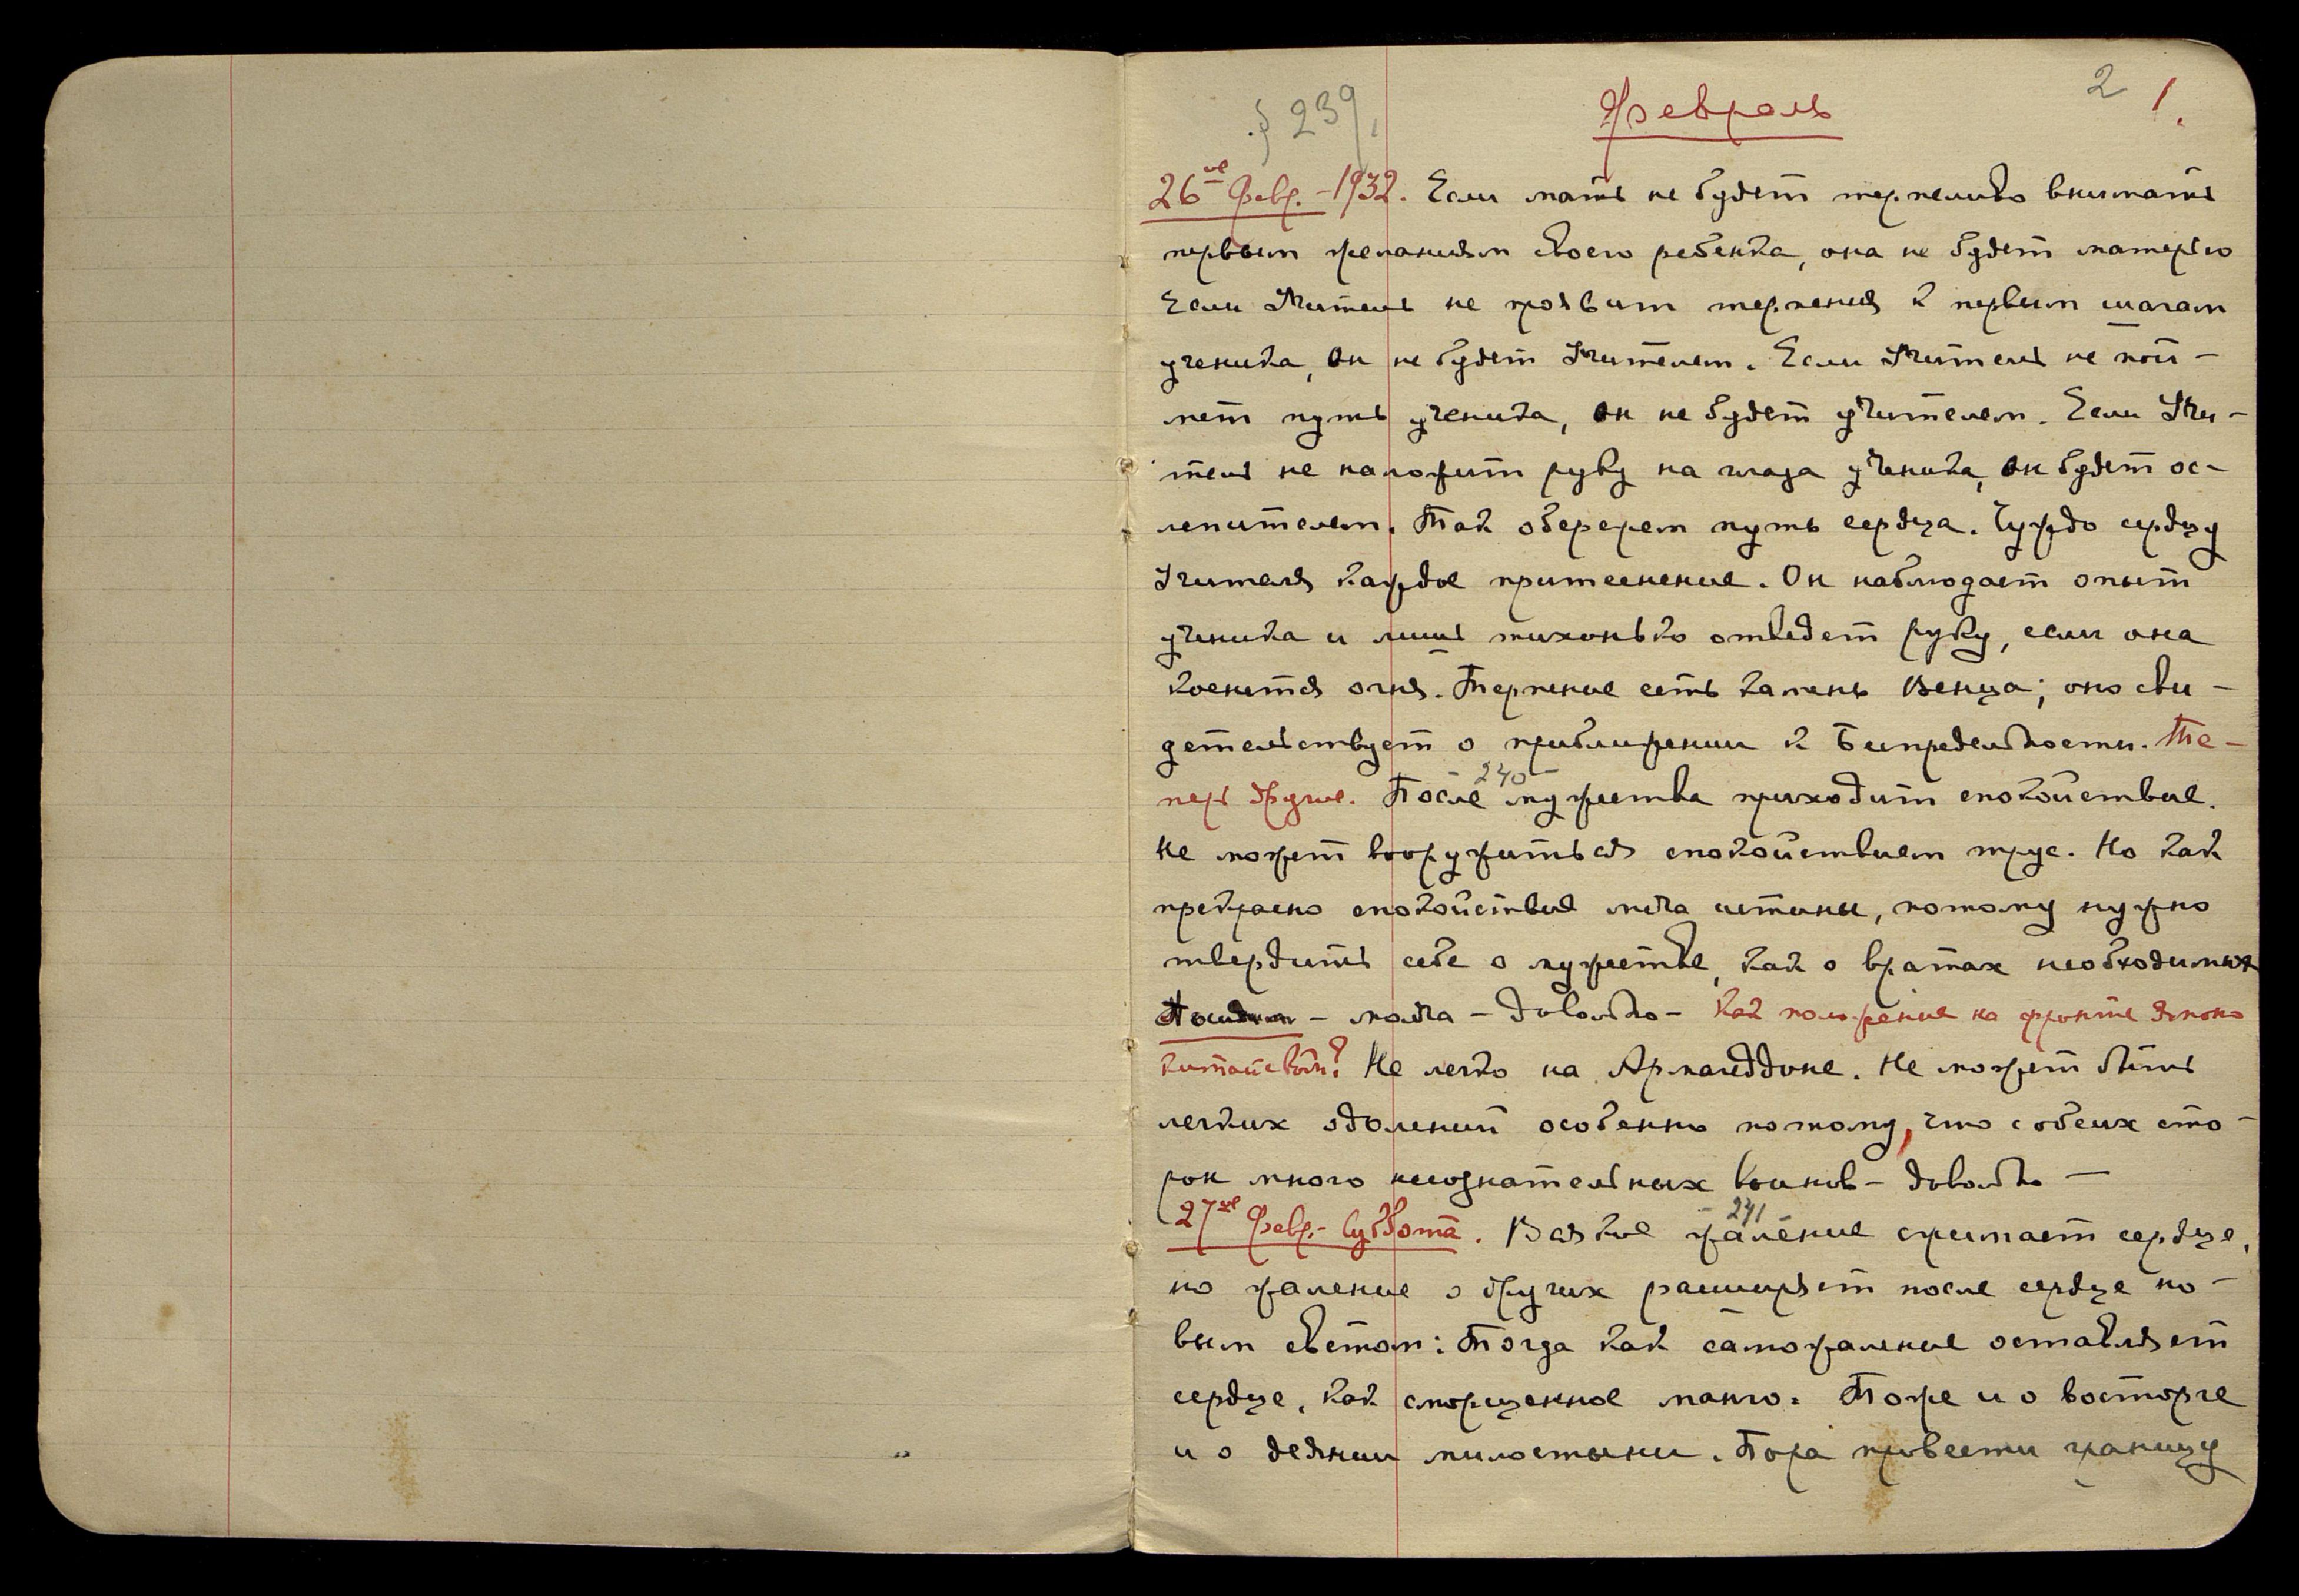 § 239.
Февраль
2 1.
26ое февр. - 1932. Если мать не будет терпеливо внимать
первым желаниям своего ребенка, она не будет матерью
Если Учитель не проявит терпения к первым шагам
ученика, Он не будет Учителем. Если Учитель не пой-
мет путь ученика, Он не будет учителем. Если Учи-
тель не наложит руку на глаза ученика, Он будет ос-
лепителем. Так обережем путь сердца. Чуждо сердцу
Учителя каждое притеснение. Он наблюдает опыт
ученика и лишь тихонько отведет руку, если она
коснется огня. Терпение есть камень Венца; оно сви-
детельствует о приближении к Беспредельности. Те-
- 240 -
перь другие. После мужества приходит спокойствие.
Не может вооружиться спокойствием трус. Но как
прекрасно спокойствие меча истины, потому нужно
твердить себе о мужестве, как о вратах необходимых
- молча - довольно - Как положение на фронте японо
китайском? Не легко на Армагеддоне. Не может быть
легких одолений особенно потому, что с обеих сто-
рон много несознательных воинов - довольно -
- 241
27ое февр. - Суббота. Всякое жаление сжимает сердце,
но жаление о других расширяет после сердце но-
вым светом: Тогда как саможаление оставляет
сердце, как сморщенное манго. Тоже и о восторге
и о деянии милостыни. Пора провести границу